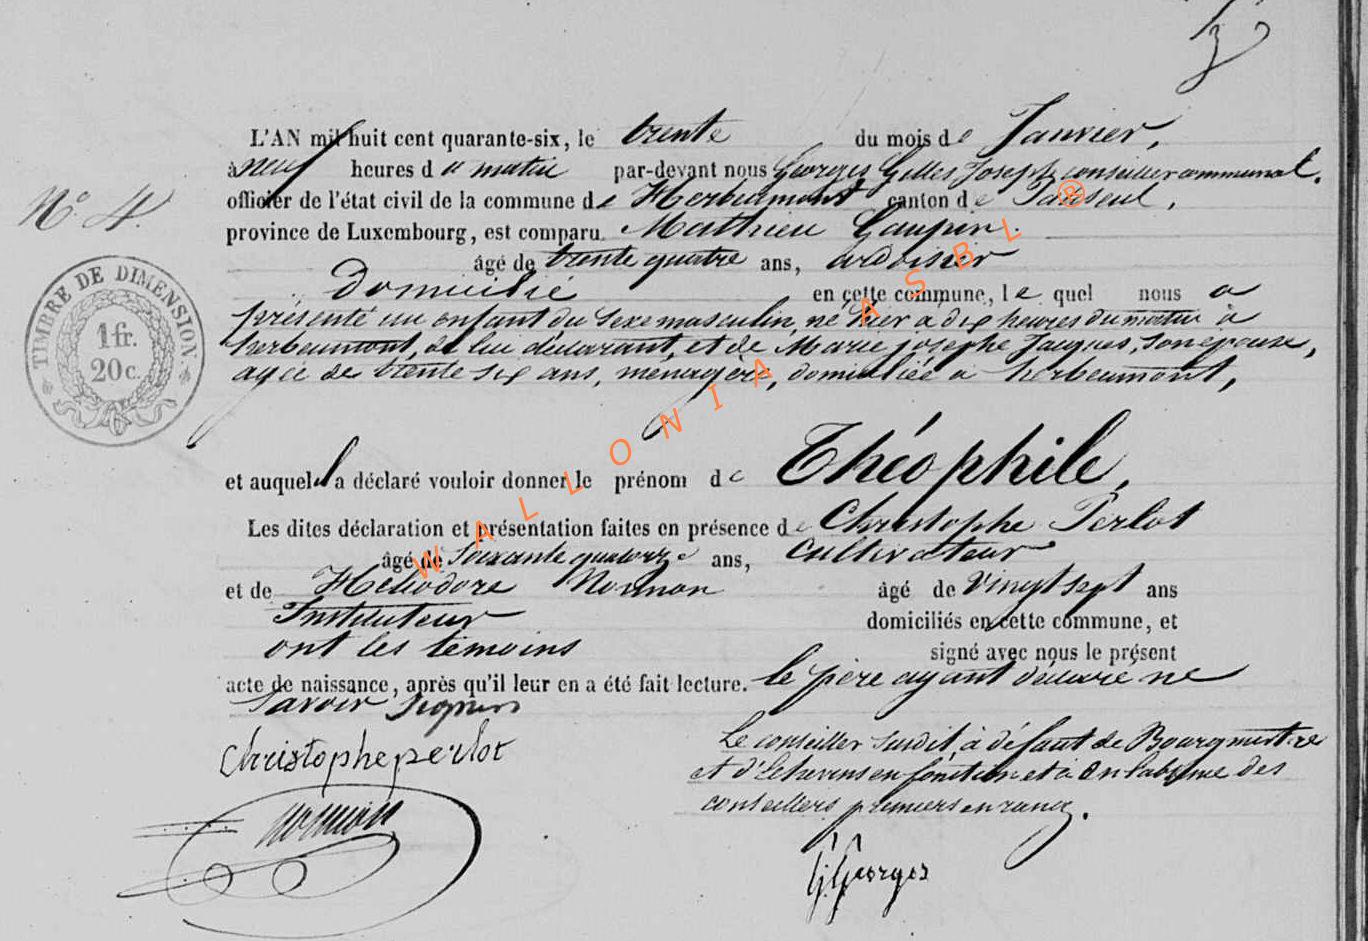 3
L'AN mil huit cent quarante-six, le trente du mois de Janvier,
à neuf heures du matin par-devant nous Georges Gilles Joseph conseiller communal.
officier de l'état civil de la commune de Herbeumont canton de Paliseul,
N.° 4.
province de Luxembourg, est comparu Mathieu Gaupin.
âgé de trente quatre ans, ardoisier
domicilié en cette commune, le quel nous a
présenté un enfant du sexe masculin, né hier a dix heures du matin à
herbeumont, de lui déclarant, et de Marie josephe Jacques, son épouse,
agée de trente six ans, ménagère, domiciliée a herbeumont,
TIMBRE DE DIMENSION
1 fr.
20 c.
et auquel il a déclaré vouloir donner le prénom de Théophile,
Les dites déclaration et présentation faites en présence de Christophe Perlot
âgé de soixante quatorze ans, cultivateur
et de Héliodore Normon âgé de vingt sept ans
Instituteur domiciliés en cette commune, et
ont les témoins signé avec nous le présent
acte de naissance, après qu'il leur en a été fait lecture. le père ayant déclaré ne
savoir signer
christophe perlot
Le conseiller susdit, à défaut de Bourgmestre
et d'Echevins en fonction et à en l'absence des
conseillers premiers en rang.
G. Georges
WALLONIA ASBL ®